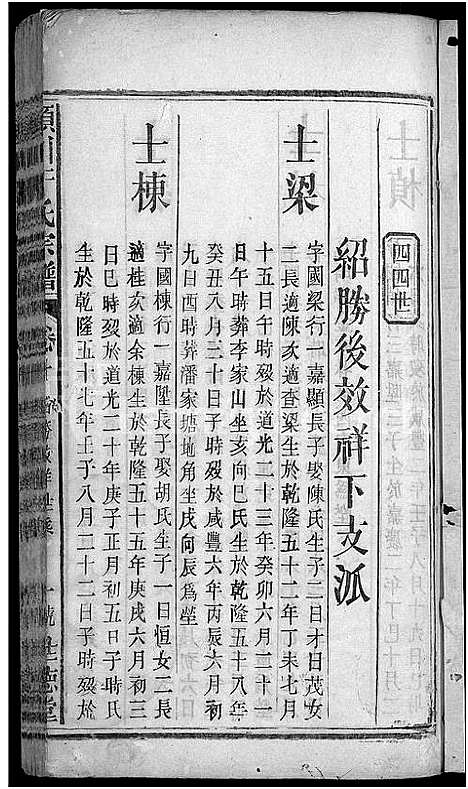 四四世
紹勝後效祥下支派
士梁
字國梁行一嘉顯長子娶陳氏生子二曰才曰茂女
二長適陳次適查梁生於乾隆五十二年丁未七月
十五日午時歿於道光二十三年癸卯六月二十一
日午時葬李家山坐亥向巳氏生於乾隆五十八年
癸丑八月三十日子時歿於咸豐六年丙辰六月初
九日酉時葬潘家塘地角坐戌向辰為塋
士棟
字國棟行一嘉陞長子娶胡氏生子一曰恒女二長
適桂次適余棟生於乾隆五十五年庚戌六月初三
日巳時歿於道光二十年庚子正月初五日子時氏
生於乾隆五十七年壬子八月二十二日子時歿於
川 氏宗譜
卷十
世系
世德堂